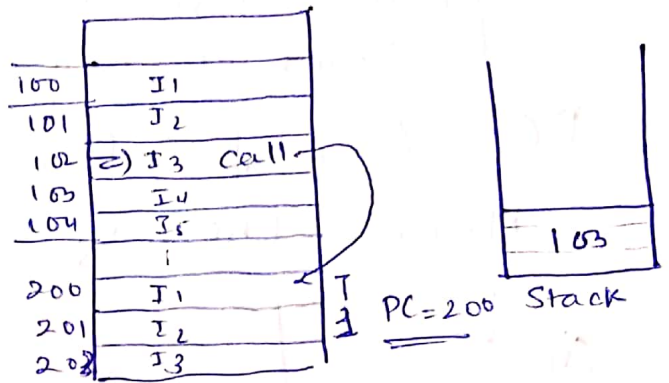 100 I1
101 I2
102 => I3 call
103 I4
104 I5
200 I1
201 I2 PC=200
202 I3
103
Stack